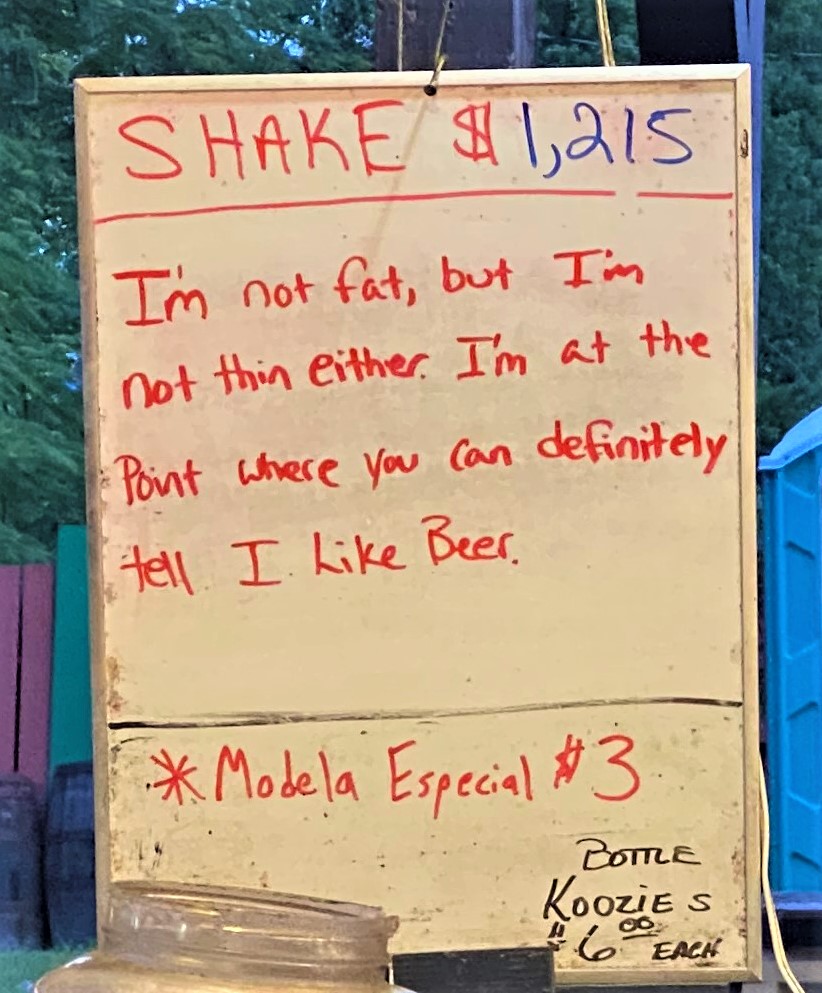 SHAKE $1,215
I'm not fat, but I'm
not thin either. I'm at the
Point where you can definitely
tell I Like Beer.
*Modela Especial $3
BOTTLE
KOOZIES
$6.00 EACH